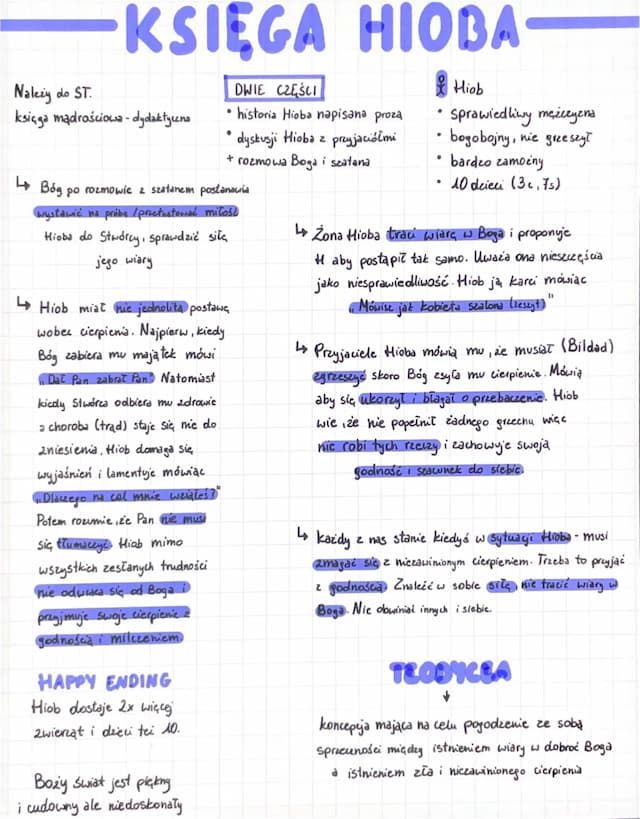 KSIĘGA HIOBA
Należy do ST.
księga mądrościowa - dydaktyczna
DWIE CZĘŚCI
• historia Hioba napisana prozą
• dyskusji Hioba z przyjaciółmi
+ rozmowa Boga i szatana
Hiob
• sprawiedliwy mężczyzna
• bogobojny, nie grzeszył
• bardzo zamożny
• 10 dzieci (3c, 7s)
↳ Bóg po rozmowie z szatanem postanawia
wystawić na próbę /przetestować miłość
Hioba do Stwórcy, sprawdzić siłę
jego wiary
↳ Hiob miał nie jednolitą postawę
wobec cierpienia. Najpierw, kiedy
Bóg zabiera mu majątek mówi
„Dał Pan zabrał Pan" Natomiast
kiedy Stwórca odbiera mu zdrowie
a choroba (trąd) staje się nie do
zniesienia, Hiob domaga się
wyjaśnień i lamentuje mówiąc
„Dlaczego na cel mnie wziąłeś?"
Potem rozumie, że Pan nie musi
się tłumaczyć. Hiob mimo
wszystkich zesłanych trudności
nie odwraca się od Boga i
przyjmuje swoje cierpienie z
godnością i milczeniem.
HAPPY ENDING
Hiob dostaje 2x więcej
zwierząt i dzieci też 10.
Boży świat jest piękny
i cudowny ale niedoskonały
↳ Żona Hioba traci wiarę w Boga i proponuje
H aby postąpił tak samo. Uważa ona nieszczęścia
jako niesprawiedliwość. Hiob ją karci mówiąc
„Mówisz jak kobieta szalona (zeszyt)"
↳ Przyjaciele Hioba mówią mu, że musiał (Bildad)
zgrzeszyć skoro Bóg zsyła mu cierpienie. Mówią
aby się ukorzył i błagał o przebaczenie. Hiob
wie, że nie popełnił żadnego grzechu więc
nie robi tych rzeczy i zachowuje swoją
godność i szacunek do siebie.
↳ Każdy z nas stanie kiedyś w sytuacji Hioba - musi
zmagać się z niezawinionym cierpieniem. Trzeba to przyjąć
z godnością. Znaleźć w sobie siłę, nie tracić wiary w
Boga. Nie obwiniać innych i siebie.
TEODYCEA
↓
koncepcja mająca na celu pogodzenie ze sobą
sprzeczności między istnieniem wiary w dobroć Boga
a istnieniem zła i niezawinionego cierpienia